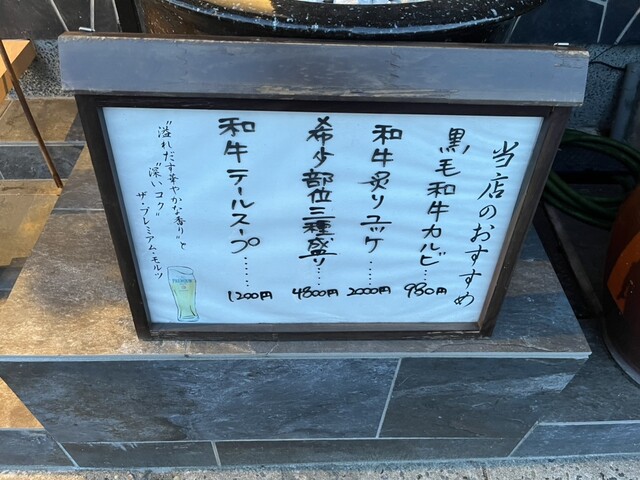 当店のおすすめ
黒毛和牛カルビ……980円
和牛炙りユッケ……2000円
希少部位三種盛り……4800円
和牛テールスープ……1200円
"溢れだす華やかな香り"と
"深いコク"
ザ・プレミアム・モルツ